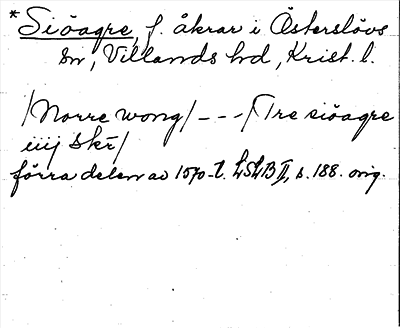 *Siöagre, f. åkrar i Österslövs
sn, Villands hd, Krist. l.
/Norre wong/ - - - /Tre siöagre
iiij Skr/
förra delen av 1570-t. LSLB II, s. 188. orig.